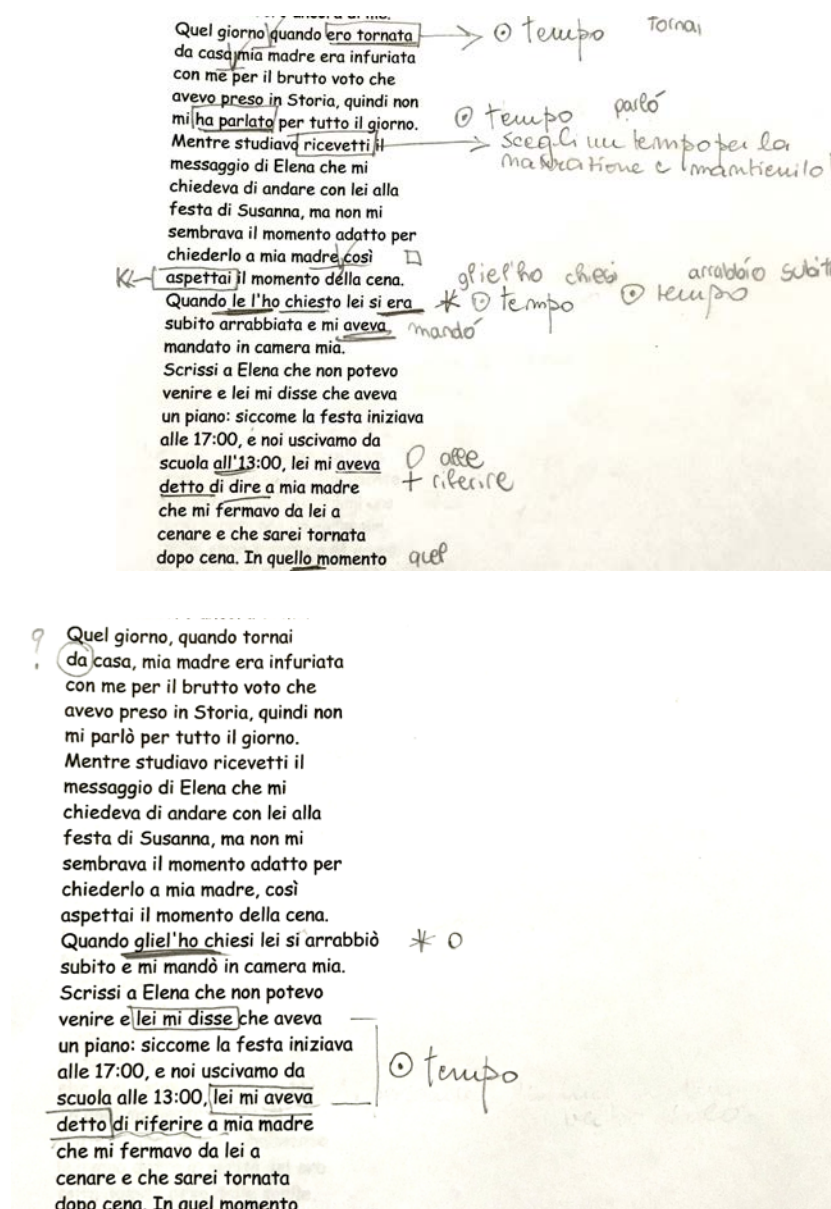 Quel giorno quando ero tornata → ⊙ tempo tornai
da casa mia madre era infuriata
con me per il brutto voto che
avevo preso in Storia, quindi non
mi ha parlato per tutto il giorno. ⊙ tempo parlò
Mentre studiavo ricevetti il → scegli un tempo per la
messaggio di Elena che mi narrazione e mantienilo
chiedeva di andare con lei alla
festa di Susanna, ma non mi
sembrava il momento adatto per
chiederlo a mia madre così
aspettai il momento della cena. gliel'ho chiesi arrabbiò
Quando le l'ho chiesto lei si era * ⊙ tempo ⊙ tempo
subito arrabbiata e mi aveva mandò
mandato in camera mia.
Scrissi a Elena che non potevo
venire e lei mi disse che aveva
un piano: siccome la festa iniziava
alle 17:00, e noi uscivamo da
scuola all'13:00, lei mi aveva O alle
detto di dire a mia madre + riferire
che mi fermavo da lei a
cenare e che sarei tornata
dopo cena. In quello momento quel
? Quel giorno, quando tornai
da casa, mia madre era infuriata
con me per il brutto voto che
avevo preso in Storia, quindi non
mi parlò per tutto il giorno.
Mentre studiavo ricevetti il
messaggio di Elena che mi
chiedeva di andare con lei alla
festa di Susanna, ma non mi
sembrava il momento adatto per
chiederlo a mia madre, così
aspettai il momento della cena.
Quando gliel'ho chiesi lei si arrabbiò * O
subito e mi mandò in camera mia.
Scrissi a Elena che non potevo
venire e lei mi disse che aveva
un piano: siccome la festa iniziava
alle 17:00, e noi uscivamo da ⊙ tempo
scuola alle 13:00, lei mi aveva
detto di riferire a mia madre
che mi fermavo da lei a
cenare e che sarei tornata
dopo cena. In quel momento